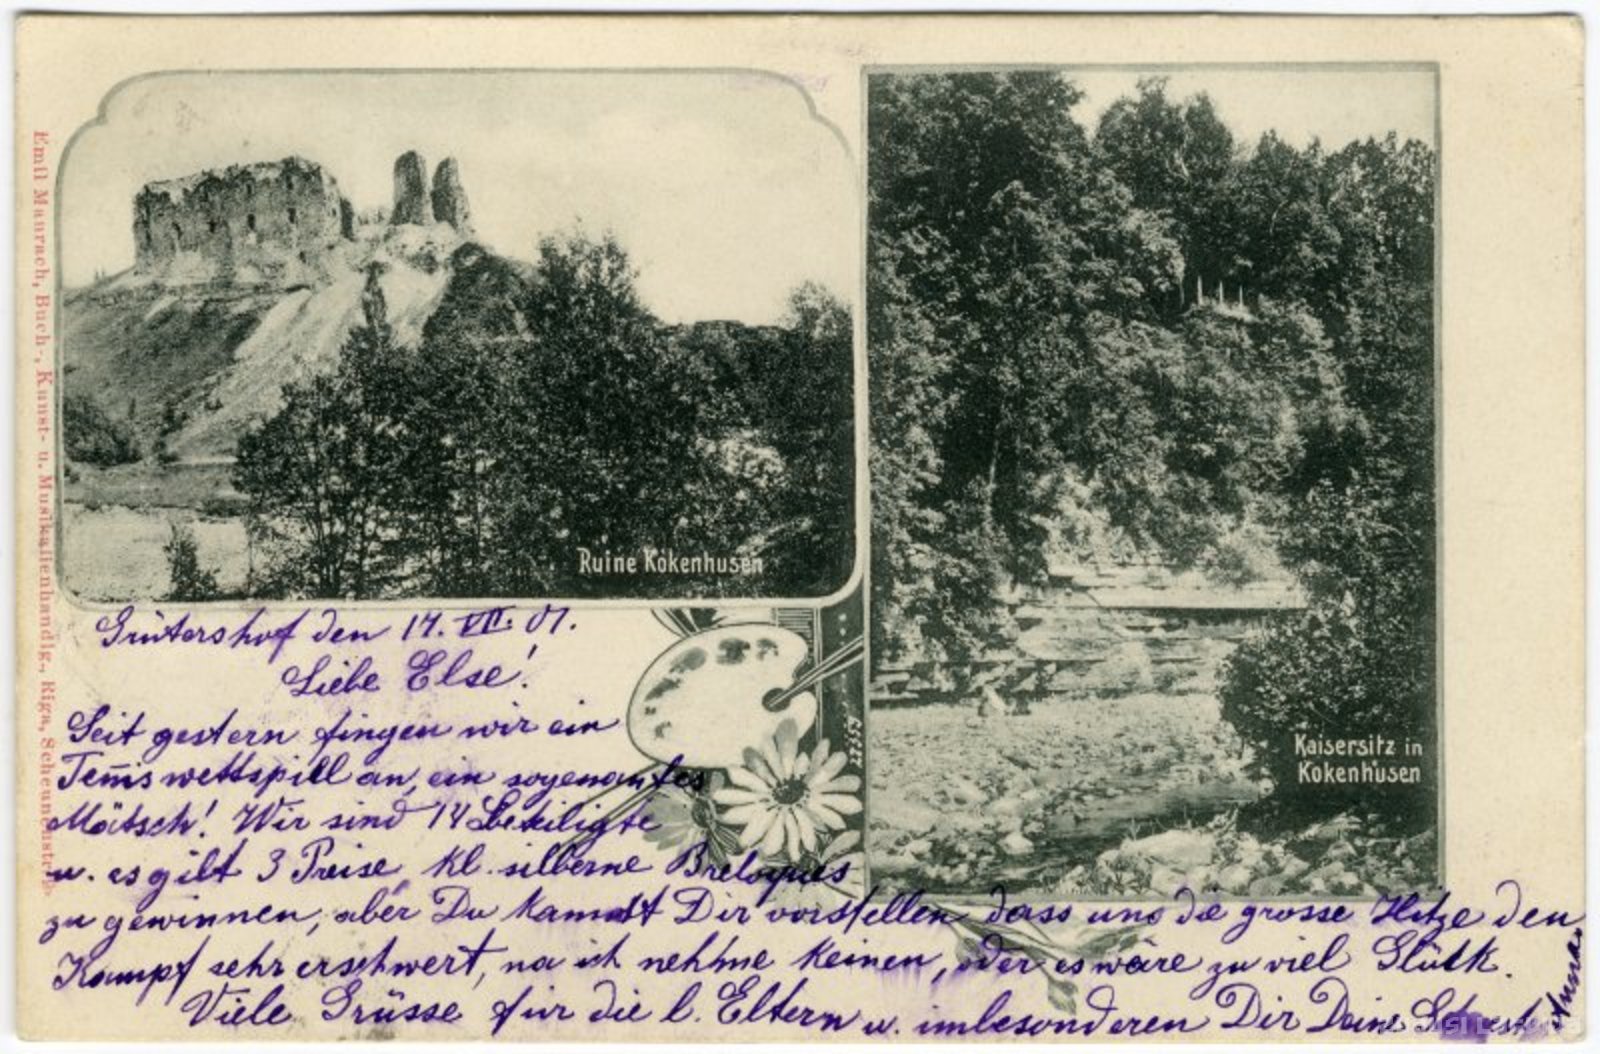 Emil Maurach, Buch-, Kunst- u. Musikalienhandlg., Riga, Scheunenstr.
Ruine Kokenhusen
Kaisersitz in
Kokenhusen
22353
Grütershof den 14. VII. 01.
Liebe Else!
Seit gestern fingen wir ein
Tenis wettspiell an, ein sogenanntes
Mätsch! Wir sind 14 Beteiligte
u. es gibt 3 Preise, kl. silberne Breloques
zu gewinnen, aber Du kannst Dir vorstellen dass uns die grosse Hitze den
Kampf sehr erschwert, na ich nehme keinen, oder es wäre zu viel Glück.
Viele Grüsse für die l. Eltern u. imbesonderen Dir Deine
Anna.